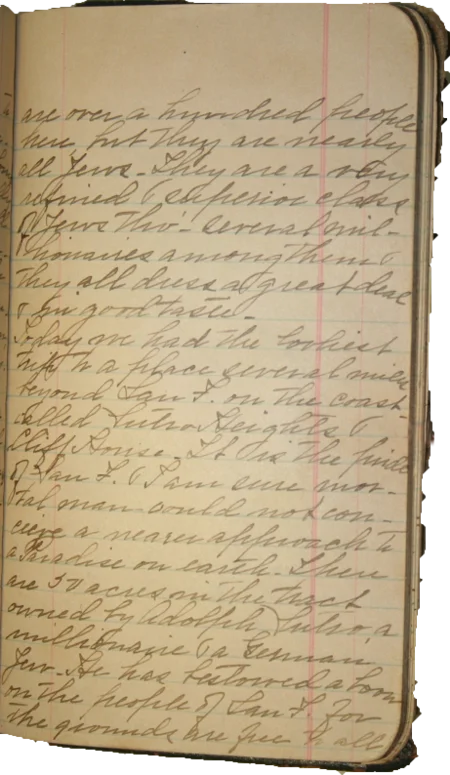 are over a hundred people
here but they are nearly
all Jews. They are a very
refined & superior class
of Jews tho'- several mil-
lionaires among them &
they all dress a great deal
& in good taste-
Today we had the loveliest
trip to a place several miles
beyond San F. on the coast-
called Sutro Heights &
Cliff House. It is the pride
of San F. & I am sure mor-
tal man could not con-
ceive a nearer approach to
a Paradise on earth. There
are 30 acres in the tract
owned by Adolph Sutro, a
millionaire & a German
Jew. He has bestowed a boon
on the people of San F. for
the grounds are free to all